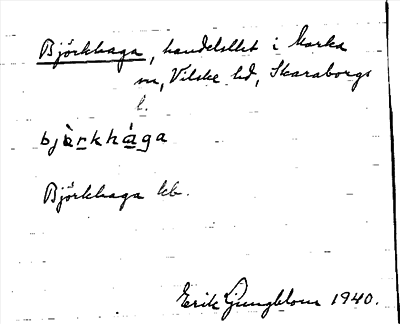 Björkhaga, handelsllet i Marka
sn, Vilske hd, Skaraborgs
l.
bjὰrkhàga
Björkhaga kb.
Erik Ljungblom 1940.